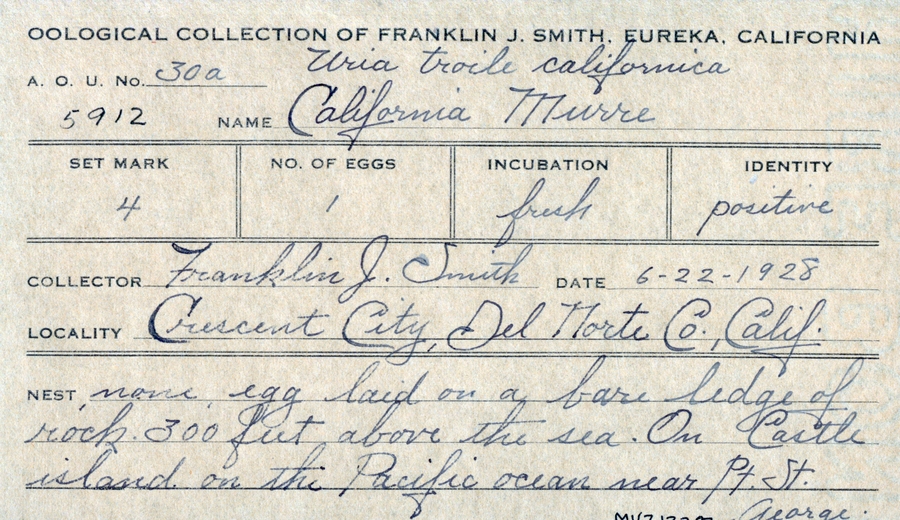 OOLOGICAL COLLECTION OF FRANKLIN J. SMITH, EUREKA, CALIFORNIA
A. O. U. No. 30a Uria troile californica
5912 NAME California Murre
SET MARK NO. OF EGGS INCUBATION IDENTITY
4 1 fresh positive
COLLECTOR Franklin J. Smith DATE 6-22-1928
LOCALITY Crescent City, Del Norte Co., Calif.
NEST none, egg laid on a bare ledge of
rock. 300 feet above the sea. On Castle
island on the Pacific ocean near Pt. St.
George.